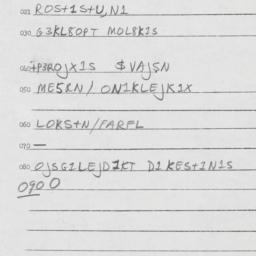 020 ROS+1S+U,N1
030 G3KL8OPT MOL8K1S
040 +P3ROJX1S $VAJSN
050 ME5&N/ ON1KLEJK1X
060 LOKS+N/FARFL
070 —
080 OJSG1LEJD1KT D1KES+1N1S
090 O